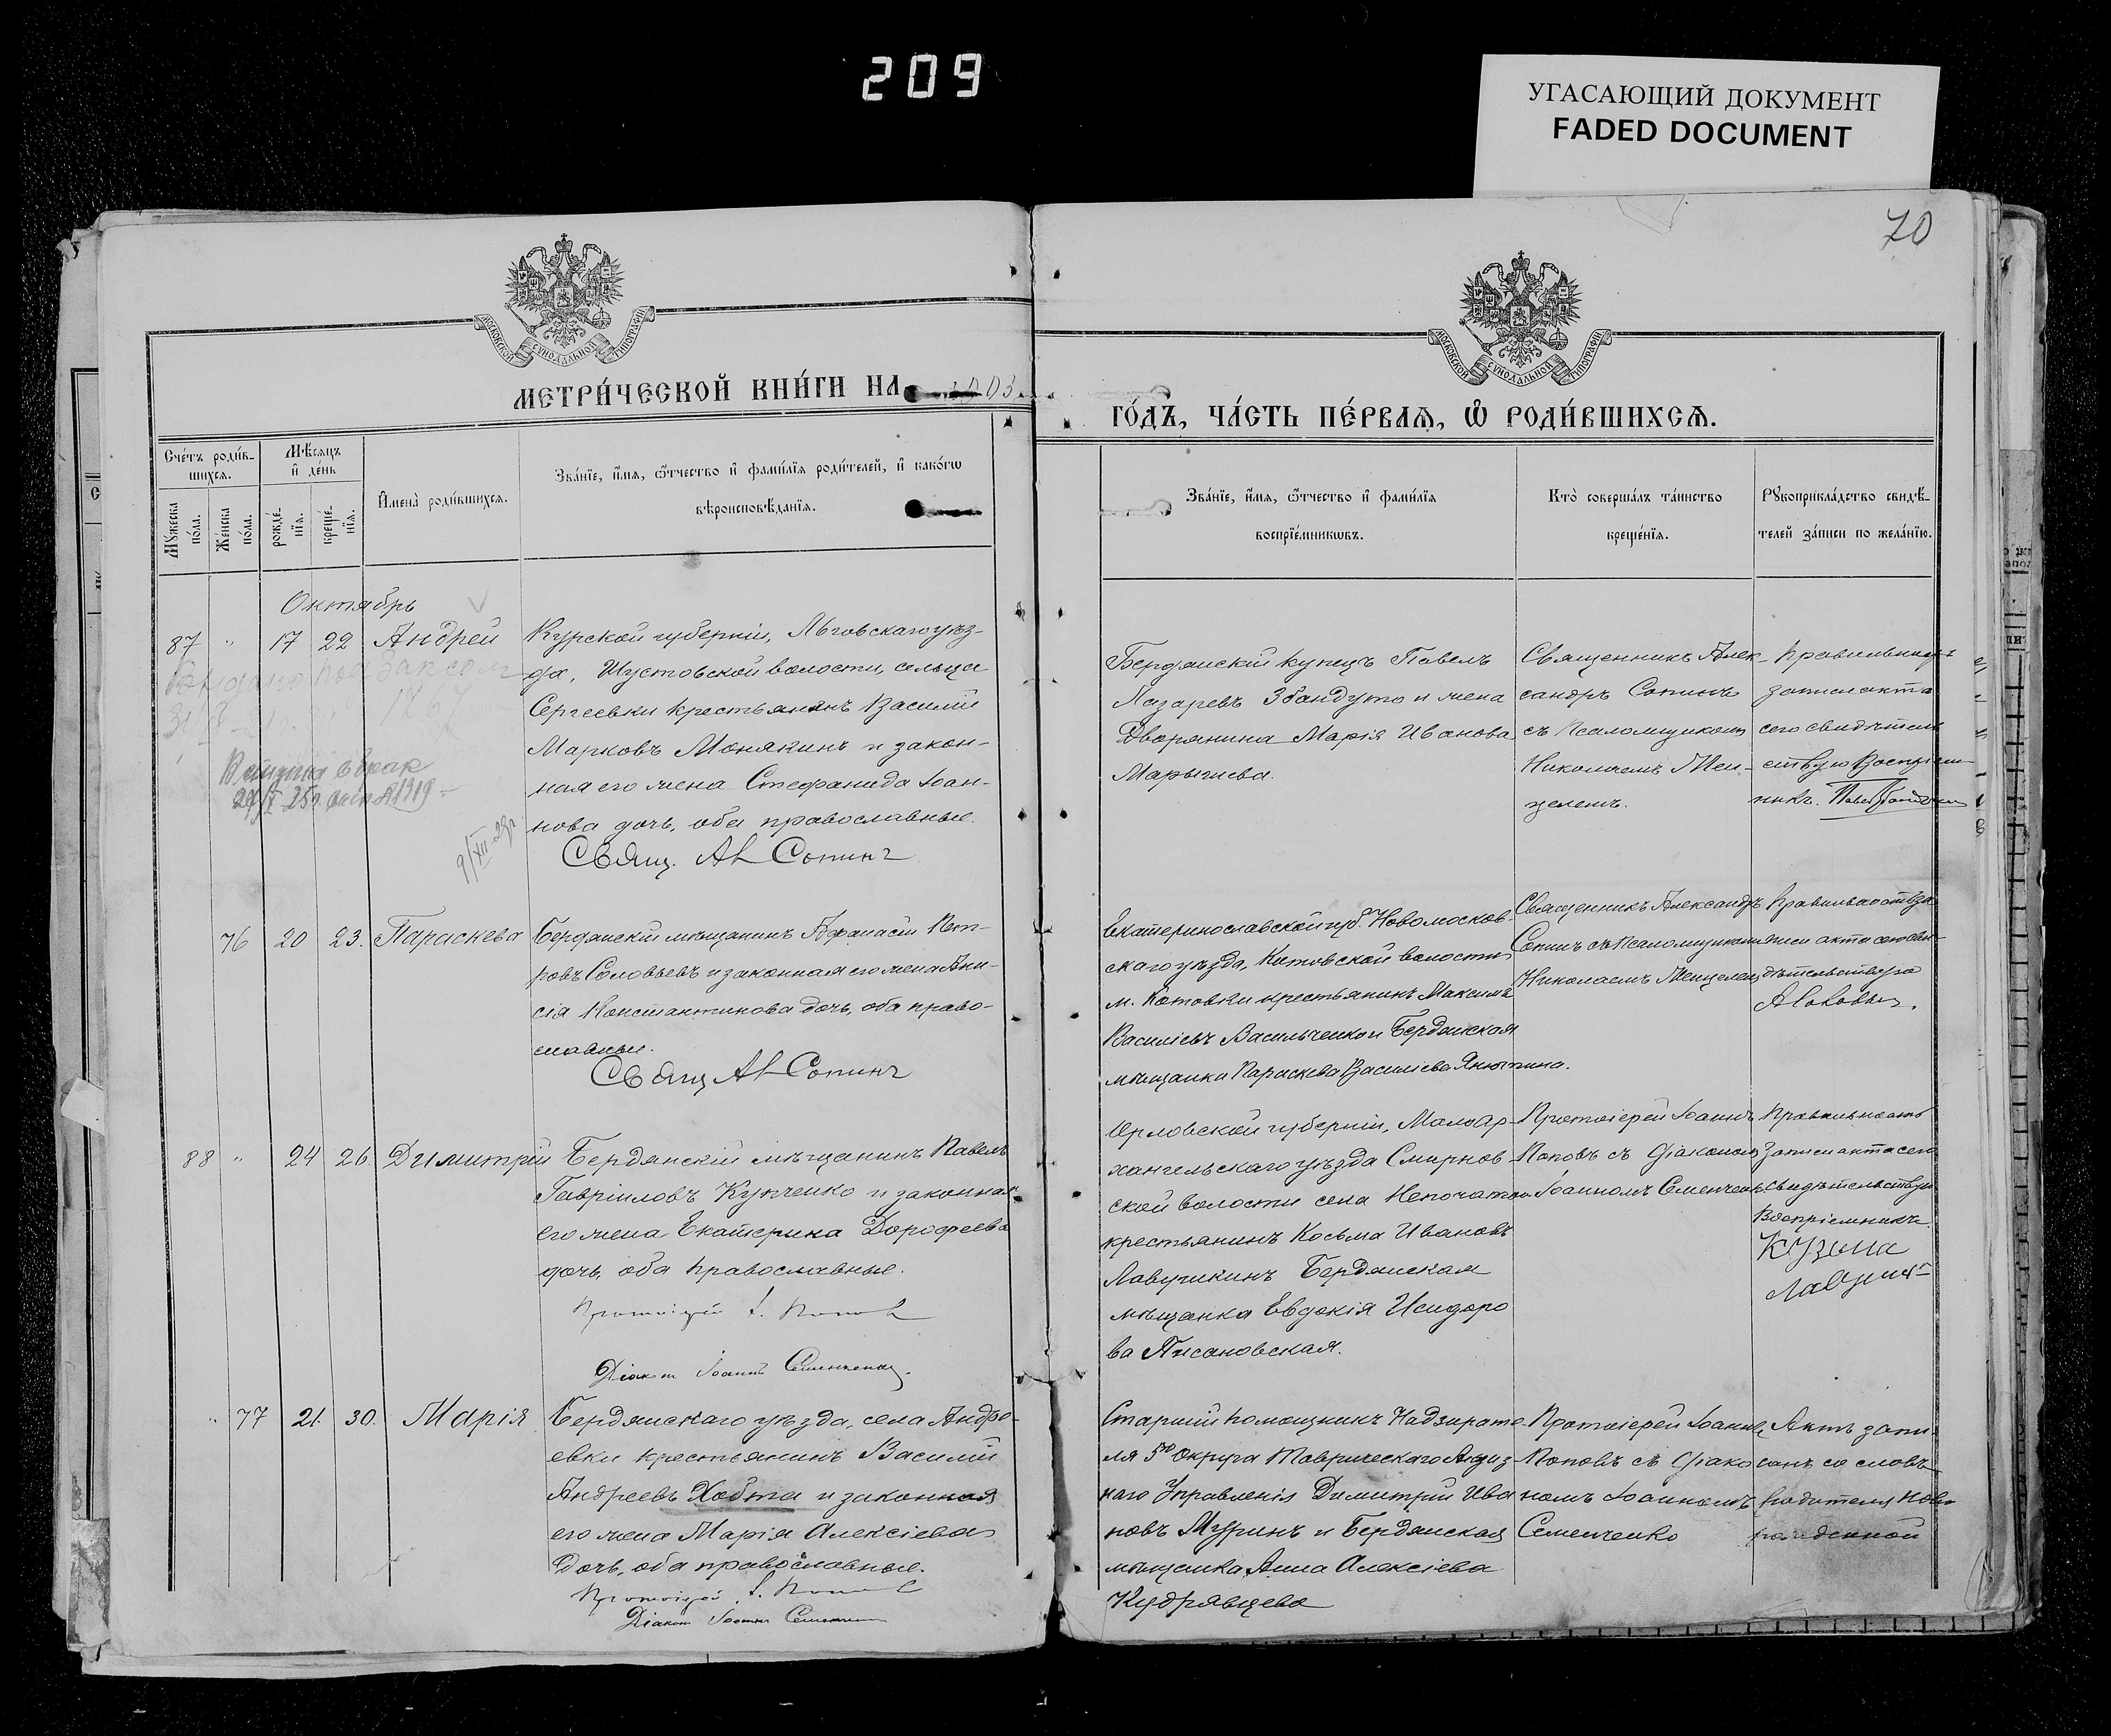 209
УГАСАЮЩИЙ ДОКУМЕНТ
FADED DOCUMENT
70
МОСКОВСКОЙ СѴНОДАЛЬНОЙ ТИПОГРАФІИ
МОСКОВСКОЙ СѴНОДАЛЬНОЙ ТИПОГРАФІИ
МЕТРИ́ЧЕСКОЙ КНИ́ГИ НА 1903
ГО́ДЪ, ЧА́СТЬ ПЕ́РВАѦ, Ѽ РОДИ́ВШИХСѦ.
Сче́тъ роди́в-
шихсѧ.
Мꙋжеска по́ла.
Же́нска по́ла.
Мѣ́сяцъ
и҆ де́нь
рожде́-
нїѧ.
креще́-
нїѧ.
И҆мена̀ роди́вшихсѧ.
Зва́нїе, и҆́мѧ, ѻ҆́тчество и҆ фами́лїѧ роди́телей, и҆ како́гѡ
вѣроисповѣ́данїѧ.
Зва́нїе, и҆́мѧ, ѻ҆́тчество и҆ фами́лїѧ
воспрїе́мникѡвъ.
Кто̀ соверша́лъ та́инство
креще́нїѧ.
Рꙋкоприкла́дство свидѣ́-
телей за́писи по жела́нїю.
Октябрь
87 " 17 22 Андрей
Курской губерніи, Льговскаго уѣз-
да, Шустовской волости, сельца
Сергеевки крестьянинъ Василій
Марковъ Монякинъ и закон-
ная его жена Стефанида Іоан-
нова дочь, оба православные.
Свящ. Ал Сопинъ
Бердянскій купецъ Павелъ
Лазаревъ Збандуто и жена
Дворянина Марія Иванова
Марычева.
Священникъ Алек-
сандръ Сопинъ
съ Псаломщикомъ
Николаемъ Мен-
целемъ.
Правильность
записи акта
сего свидѣтель
ствую Воспріем-
никъ. Павел
9/XII 29г
76 20 23. Параскева
Бердянскій мѣщанинъ Афанасій Пет-
ровъ Соловьевъ и законная его жена Ани-
сія Константинова дочь, оба право-
славные.
Свящ Ал Сопинъ
Екатеринославской губ. Новомосков-
скаго уѣзда, Котовской волости
м. Котовки крестьянинъ Максимъ
Василіевъ Васильченко и Бердянская
мѣщанка Параскева Василіева Янютина.
Священникъ Александръ
Сопинъ съ Псаломщикомъ
Николаемъ Менцелемъ
Правильность за
писи акта сего сви-
дѣтельствую
88 " 24 26 Димитрій
Бердянскій мѣщанинъ Павелъ
Гавріиловъ Купченко и законная
его жена Екатерина Дорофеева
дочь, оба православные.
Протоіерей І. Попов
Діакон Іоаннъ Семенченко.
Орловской губерніи, Малоар-
хангельскаго уѣзда Смирнов-
ской волости села Непочатаго
крестьянинъ Косьма Ивановъ
Лавушкинъ Бердянская
мѣщанка Евдокія Исидоро
ва Писановская.
Протоіерей Іоаннъ
Поповъ съ Діакономъ
Іоанномъ Семенченко
Правильность
записи акта сего
свидѣтельствую
Воспріемникъ
Кузьма
" 77 21. 30. Марія
Бердянскаго уѣзда, села Андре-
евки крестьянинъ Василій
Андреевъ Хобта и законная
его жена Марія Алексіева
дочь, оба православные.
Протоіерей І. Попов
Діакон Іоаннъ Семенченко
Старшій помощникъ Надзирате
ля 5го Округа Таврическаго Акциз
наго Управленія Димитрій Ива
новъ Муринъ и Бердянская
мѣщанка Анна Алексіева
Кудрявцева
Протоіерей Іоаннъ
Поповъ съ Діако
номъ Іоанномъ
Семенченко
Актъ запи-
санъ со словъ
родителя ново
рожденной